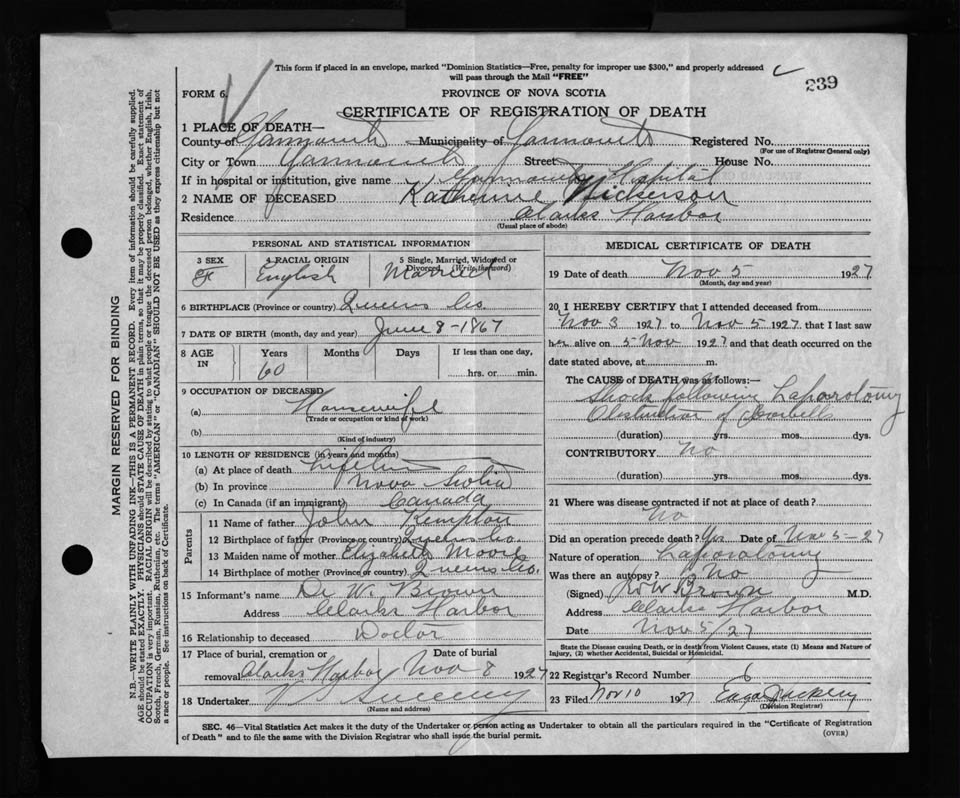 This form if placed in an envelope, marked "Dominion Statistics—Free, penalty for improper use $300," and properly addressed
will pass through the Mail "FREE"
239
FORM 6.
PROVINCE OF NOVA SCOTIA
CERTIFICATE OF REGISTRATION OF DEATH
1 PLACE OF DEATH—
County of Yarmouth Municipality of Yarmouth Registered No.
(For use of Registrar General only)
City or Town Yarmouth Street House No.
If in hospital or institution, give name Yarmouth Hospital
2 NAME OF DECEASED Katherine Nickerson
Residence Clarks Harbor
(Usual place of abode)
PERSONAL AND STATISTICAL INFORMATION
3 SEX 4 RACIAL ORIGIN 5 Single, Married, Widowed or Divorced (Write the word)
F English Married
6 BIRTHPLACE (Province or country) Queens Co.
7 DATE OF BIRTH (month, day and year) June 8-1867
8 AGE IN Years Months Days If less than one day,
60 hrs. or min.
9 OCCUPATION OF DECEASED
(a) Housewife
(Trade or occupation or kind of work)
(b)
(Kind of industry)
10 LENGTH OF RESIDENCE (in years and months)
(a) At place of death Lifetime
(b) In province Nova Scotia
(c) In Canada (if an immigrant) Canada
Parents
11 Name of father John Kempton
12 Birthplace of father (Province or country) Queens Co.
13 Maiden name of mother Elizabeth Moore
14 Birthplace of mother (Province or country) Queens Co.
15 Informant's name Dr W. Brown
Address Clarks Harbor
16 Relationship to deceased Doctor
17 Place of burial, cremation or Date of burial
removal Clarks Harbor Nov 8 1927
18 Undertaker V Sweeney
(Name and address)
MEDICAL CERTIFICATE OF DEATH
19 Date of death Nov 5 1927
(Month, day and year)
20 I HEREBY CERTIFY that I attended deceased from
Nov 3 1927 to Nov 5 1927 that I last saw
her alive on 5 Nov 1927 and that death occurred on the
date stated above, at m.
The CAUSE OF DEATH was as follows:—
Shock following Laporotomy
Obstruction of bowells
(duration) yrs. mos. dys.
CONTRIBUTORY No
(duration) yrs. mos. dys.
21 Where was disease contracted if not at place of death?
No
Did an operation precede death? Yes Date of Nov 5-27
Nature of operation Laporatomy
Was there an autopsy? No
(Signed) W W Brown M.D.
Address Clarks Harbor
Date Nov 5/27
State the Disease causing Death, or in death from Violent Causes, state (1) Means and Nature of
Injury, (2) whether Accidental, Suicidal or Homicidal.
22 Registrar's Record Number 6
23 Filed Nov 10 1927
(Division Registrar)
SEC. 46—Vital Statistics Act makes it the duty of the Undertaker or person acting as Undertaker to obtain all the particulars required in the "Certificate of Registration
of Death" and to file the same with the Division Registrar who shall issue the burial permit.
(OVER)
MARGIN RESERVED FOR BINDING
N.B.—WRITE PLAINLY WITH UNFADING INK—THIS IS A PERMANENT RECORD. Every item of information should be carefully supplied.
AGE should be stated EXACTLY. PHYSICIANS should STATE CAUSE OF DEATH in plain terms, so that it may be properly classified. Exact statement of
OCCUPATION is very important. RACIAL ORIGIN will be described by stating to what people or tongue the deceased person belonged, whether English, Irish,
Scotch, French, German, Russian, Ruthenian, etc. The terms "AMERICAN" or "CANADIAN" SHOULD NOT BE USED as they express citizenship but not
a race or people. See instructions on back of Certificate.